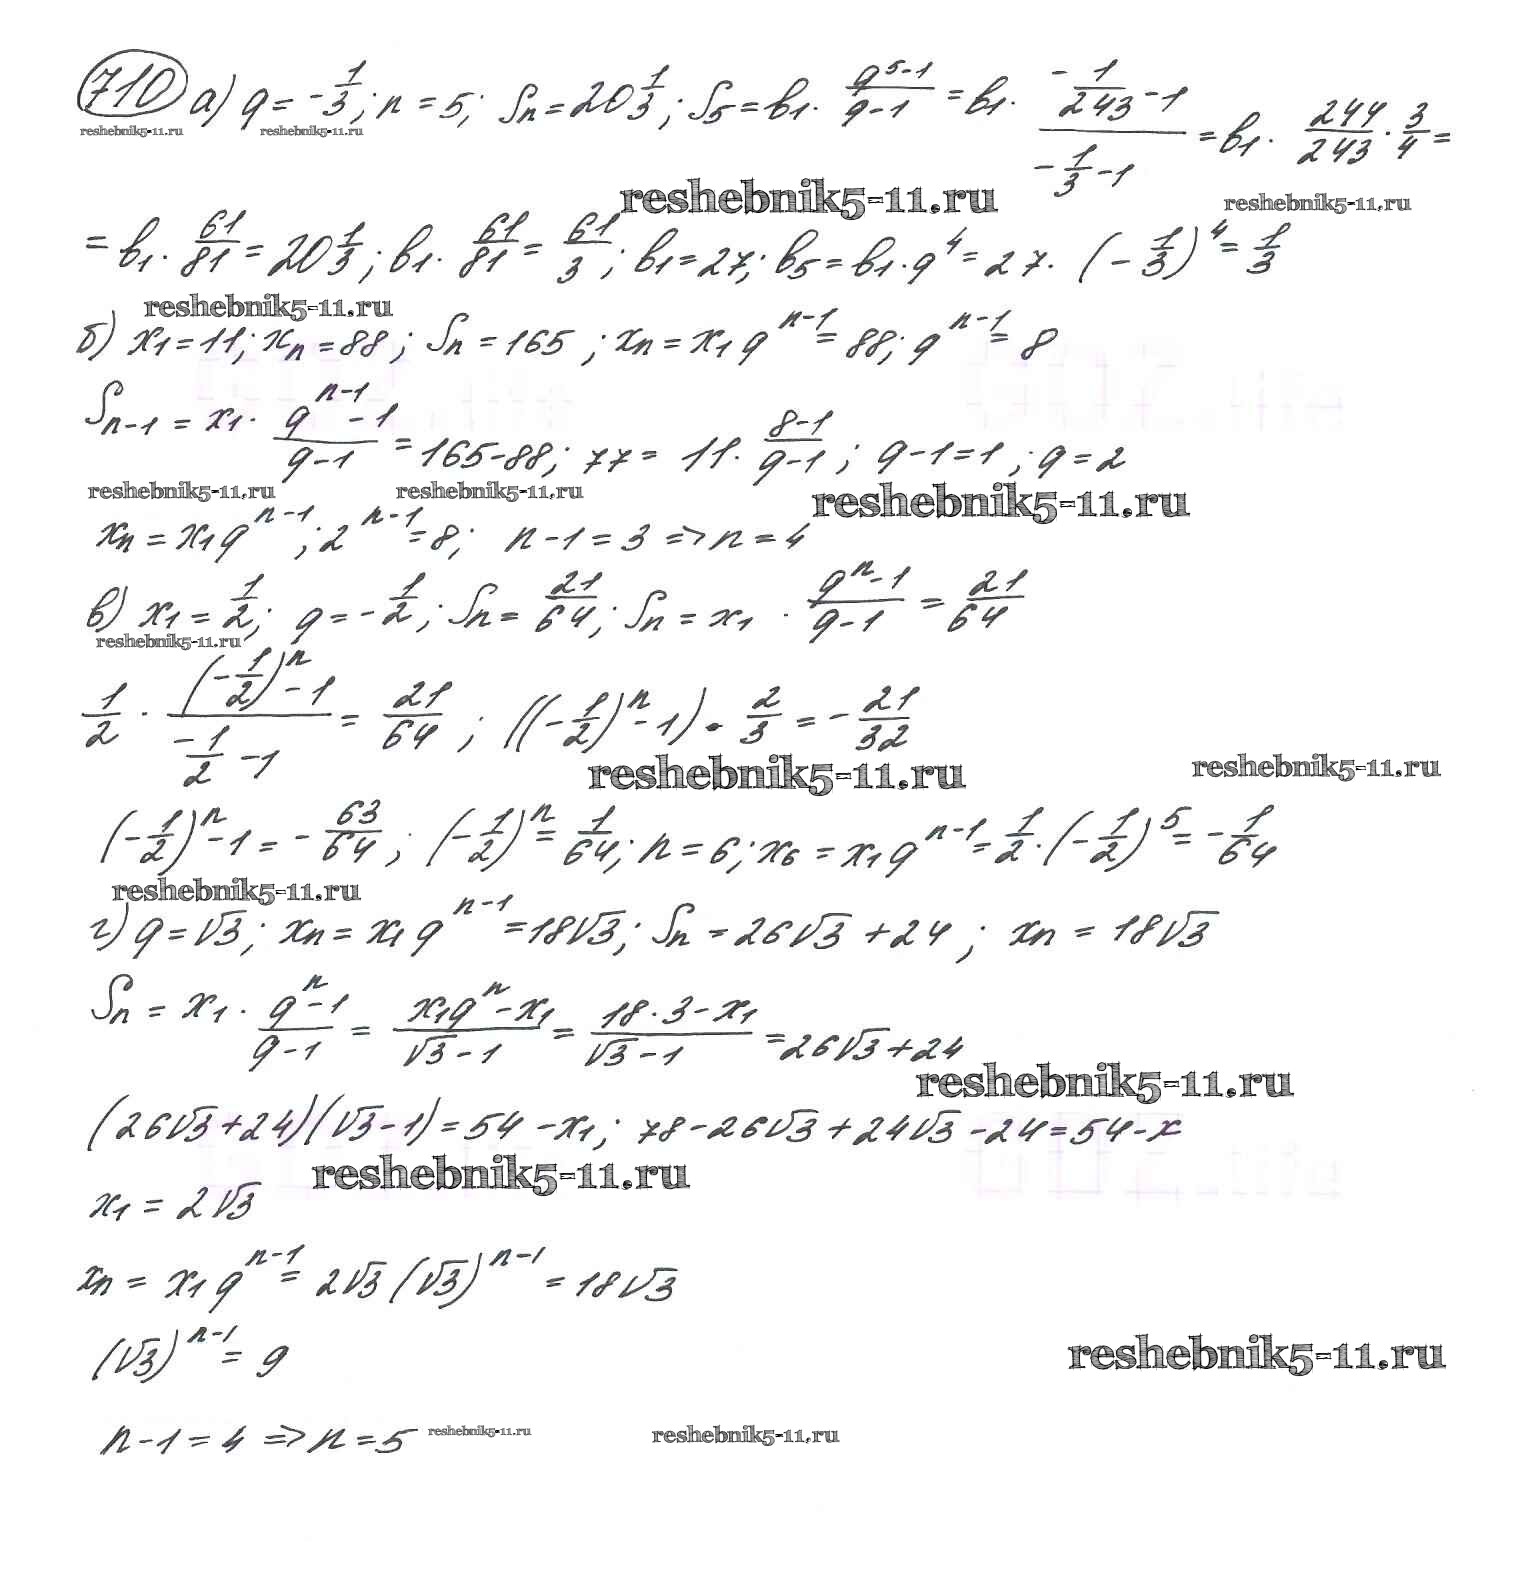 710 а) q = -1/3; n = 5; Sn = 20 1/3; S5 = b1 · (q^5-1)/(q-1) = b1 · (-1/243 - 1)/(-1/3 - 1) = b1 · 244/243 · 3/4 =
reshebnik5-11.ru reshebnik5-11.ru
reshebnik5-11.ru reshebnik5-11.ru
= b1 · 61/81 = 20 1/3; b1 · 61/81 = 61/3; b1 = 27; b5 = b1 · q^4 = 27 · (-1/3)^4 = 1/3
reshebnik5-11.ru
б) x1 = 11; xn = 88; Sn = 165; xn = x1 q^(n-1) = 88; q^(n-1) = 8
Sn-1 = x1 · (q^(n-1) - 1)/(q-1) = 165-88; 77 = 11 · (8-1)/(q-1); q-1 = 1; q = 2
reshebnik5-11.ru reshebnik5-11.ru reshebnik5-11.ru
xn = x1 q^(n-1); 2^(n-1) = 8; n-1 = 3 => n = 4
в) x1 = 1/2; q = -1/2; Sn = 21/64; Sn = x1 · (q^n - 1)/(q-1) = 21/64
reshebnik5-11.ru
1/2 · ((-1/2)^n - 1)/(-1/2 - 1) = 21/64; ((-1/2)^n - 1) · 2/3 = -21/32
reshebnik5-11.ru reshebnik5-11.ru
(-1/2)^n - 1 = -63/64; (-1/2)^n = 1/64; n = 6; x6 = x1 q^(n-1) = 1/2 · (-1/2)^5 = -1/64
reshebnik5-11.ru
г) q = √3; xn = x1 q^(n-1) = 18√3; Sn = 26√3 + 24; xn = 18√3
Sn = x1 · (q^n - 1)/(q-1) = (x1 q^n - x1)/(√3 - 1) = (18 · 3 - x1)/(√3 - 1) = 26√3 + 24
reshebnik5-11.ru
(26√3 + 24)(√3 - 1) = 54 - x1; 78 - 26√3 + 24√3 - 24 = 54 - x
reshebnik5-11.ru
x1 = 2√3
xn = x1 q^(n-1) = 2√3 (√3)^(n-1) = 18√3
(√3)^(n-1) = 9
reshebnik5-11.ru
n-1 = 4 => n = 5
reshebnik5-11.ru reshebnik5-11.ru